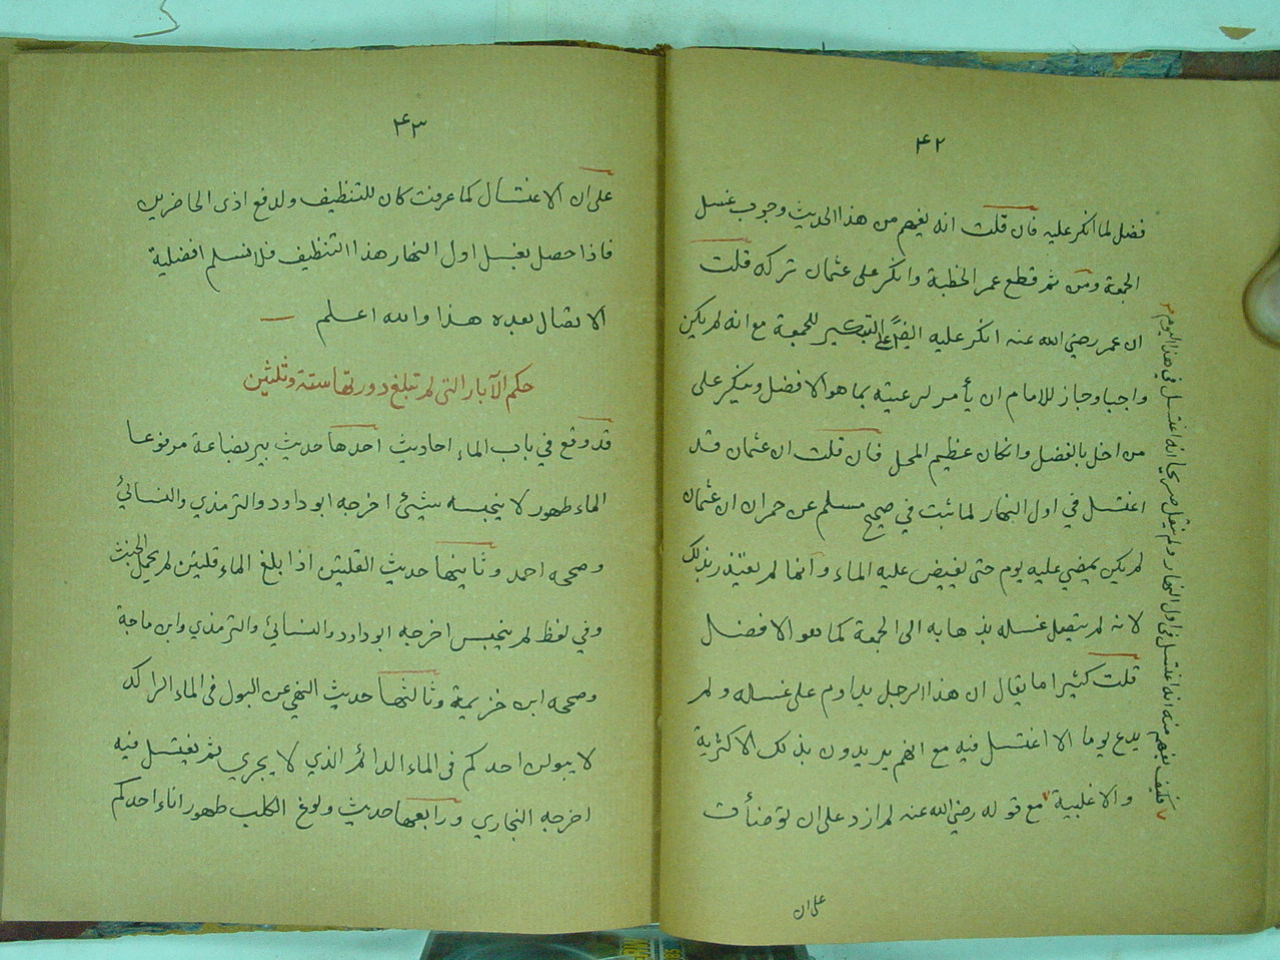 ٤٢
فضل لما انكر عليه فان قلت انه يفهم من هذا الحديث وجوب غسل
الجمعة ومن ثم قطع عمر الخطبة وانكر على عثمان تركه قلت
ان عمر رضي الله عنه انكر عليه ايضًا على التبكير للجمعة مع انه لم يكن
واجبا وجاز للامام ان يأمر لرعيته بما هو الافضل وينكر على
من اخل بالفضل وان كان عظيم المحل فان قلت ان عثمان قد
اغتسل في اول النهار لما ثبت في صحيح مسلم عن حمران ان عثمان
لم يكن يمضي عليه يوم حتى يفيض عليه الماء وانما لم يعتذر بذلك
لانه لم يتصل غسله بذهابه الى الجمعة كما هو الافضل
قلت كثيرا ما يقال ان هذا الرجل يداوم على غسله ولم
يدع يوما الا اغتسل فيه مع انهم يريدون بذلك الاكثرية
والاغلبية مع قوله رضي الله عنه لم ازد على ان توضأت
فكيف يفهم منه انه اغتسل في اول النهار ولم ينقل صريحا انه اغتسل في هذا اليوم
على ان
٤٣
على ان الاغتسال كما عرفت كان للتنظيف ولدفع اذى الحاضرين
فاذا حصل بغسل اول النهار هذا التنظيف فلا نسلم افضلية
الاتصال بعده هذا والله اعلم
حكم الآبار التى لم تبلغ دورتها ستة وثلثين
قد وقع في باب الماء احاديث احدها حديث بير بضاعة مرفوعا
الماء طهور لا ينجسه شيئ اخرجه ابو داود والترمذي والنسائي
وصححه احمد وثانيها حديث القلتين اذا بلغ الماء قلتين لم يحمل الخبث
وفي لفظ لم ينجس اخرجه ابو داود والنسائي والترمذي وابن ماجة
وصححه ابن خزيمة وثالثها حديث النهي عن البول فى الماء الراكد
لا يبولن احدكم فى الماء الدائم الذي لا يجري ثم يغتسل فيه
اخرجه البخاري ورابعها حديث ولوغ الكلب طهور اناء احدكم